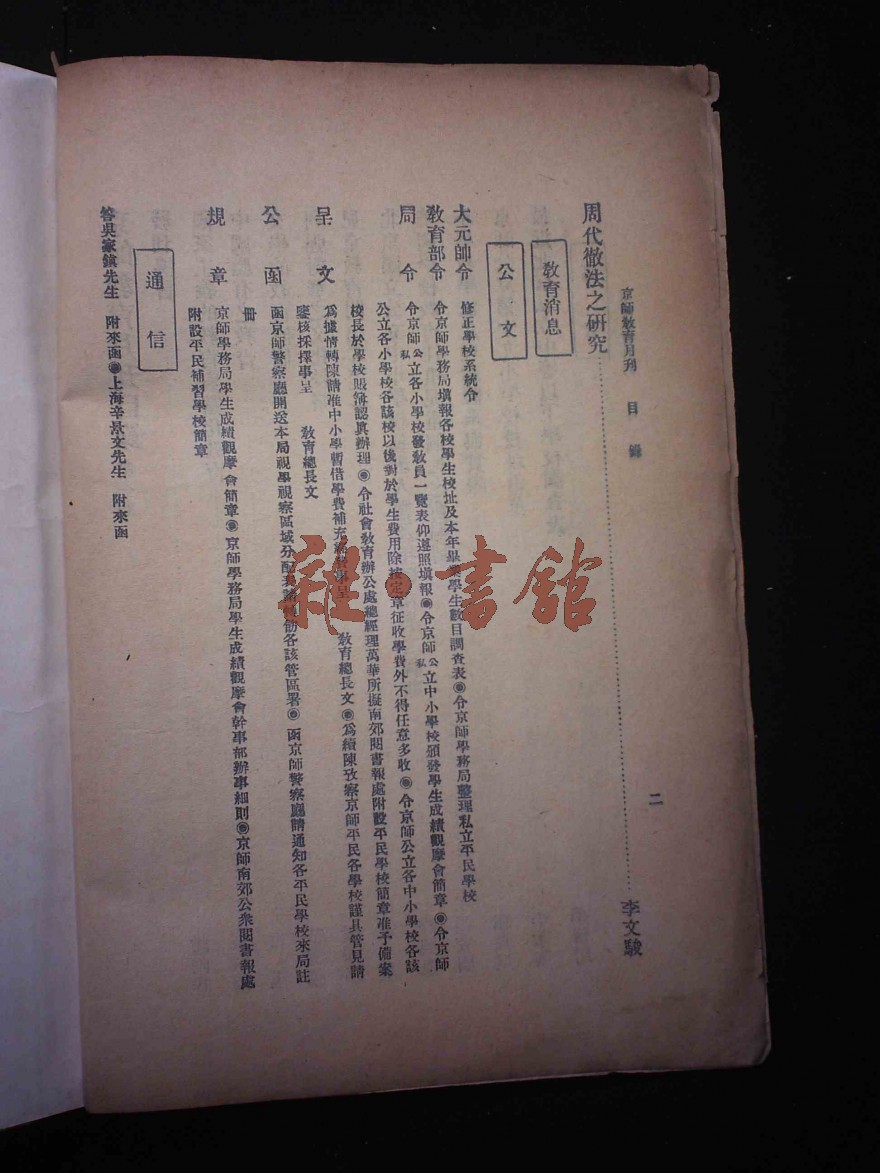 京師教育月刊 目錄 二
周代徹法之研究……李文駿
教育消息
公文
大元帥令 修正學校系統令
教育部令 令京師學務局填報各校學生校址及本年畢業學生數目調查表◉令京師學務局整理私立平民學校
局令 令京師公私立各小學校發教員一覽表仰遵照填報◉令京師公私立中小學校頒發學生成績觀摩會簡章◉令京師
公立各小學校各該校以後對於學生費用除按定章征收學費外不得任意多收◉令京師公立各中小學校各該
校長於學校賬簿認眞辦理◉令社會教育辦公處總經理萬華所擬南郊閱書報處附設平民學校簡章准予備案
呈文 爲據情轉陳請准中小學暫借學費補充 呈 教育總長文◉爲續陳攷察京師平民各學校謹具管見請
鑒核採擇事呈 教育總長文
公函 函京師警察廳開送本局視學視察區域分配表請轉飭各該管區署◉函京師警察廳請通知各平民學校來局註
冊
規章 京師學務局學生成績觀摩會簡章◉京師學務局學生成績觀摩會幹事部辦事細則◉京師南郊公衆閱書報處
附設平民補習學校簡章
通信
答吳家鎮先生 附來函◉上海辛景文先生 附來函
雜·書館